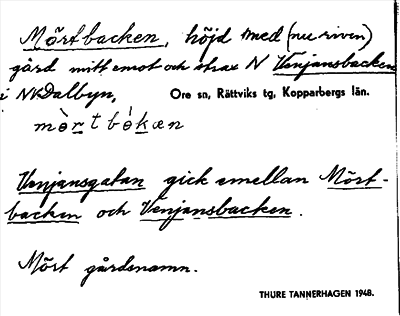 Mörtbacken, höjd med (nu riven)
gård mitt emot och strax N Venjansbacken
i NV Dalbyn, Ore sn, Rättviks tg, Kopparbergs län.
mö̀rtbákæn
Venjansgatan gick emellan Mört-
backen och Venjansbacken.
Mört gårdsnamn.
THURE TANNERHAGEN 1948.